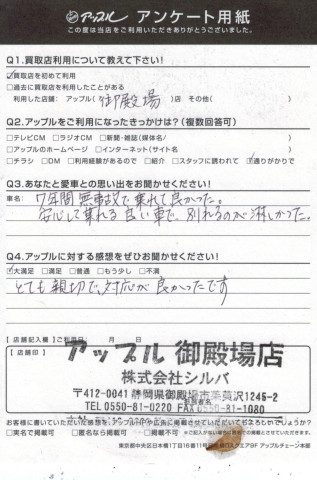 アップル アンケート用紙
この度は当店をご利用いただきありがとうございました。
Q1.買取店利用について教えて下さい!
☑買取店を初めて利用
□過去に買取店を利用したことがある
利用した店舗: アップル(御殿場)店 その他( )
Q2.アップルをご利用になったきっかけは?(複数回答可)
□テレビCM □ラジオCM □新聞・雑誌(媒体名/ )
□アップルのホームページ □インターネット(サイト名 )
□チラシ □DM □利用経験があるので □紹介 □スタッフに誘われて ☑通りがかりで
Q3.あなたと愛車との思い出をお聞かせください!
車名: 7年間無事故で乗れて良かった。
安心して乗れる良い車で、別れるのが淋しかった。
Q4.アップルに対する感想をぜひお聞かせください!
☑大満足 □満足 □普通 □もう少し □不満
とても親切で、対応が良かったです
【店舗記入欄】ご利用日 月 日
【店舗印】
アップル 御殿場店
株式会社シルバ
〒412-0041 静岡県御殿場市茱萸沢1245-2
TEL 0550-81-0220 FAX 0550-81-1080
お客様に書いていただいた感想を、アップルHPや広告に掲載させていただいてもよろしいでしょうか?
□実名で掲載可 □匿名なら掲載可 □掲載不可
東京都中央区日本橋1丁目16番11号 9F アップルチェーン本部